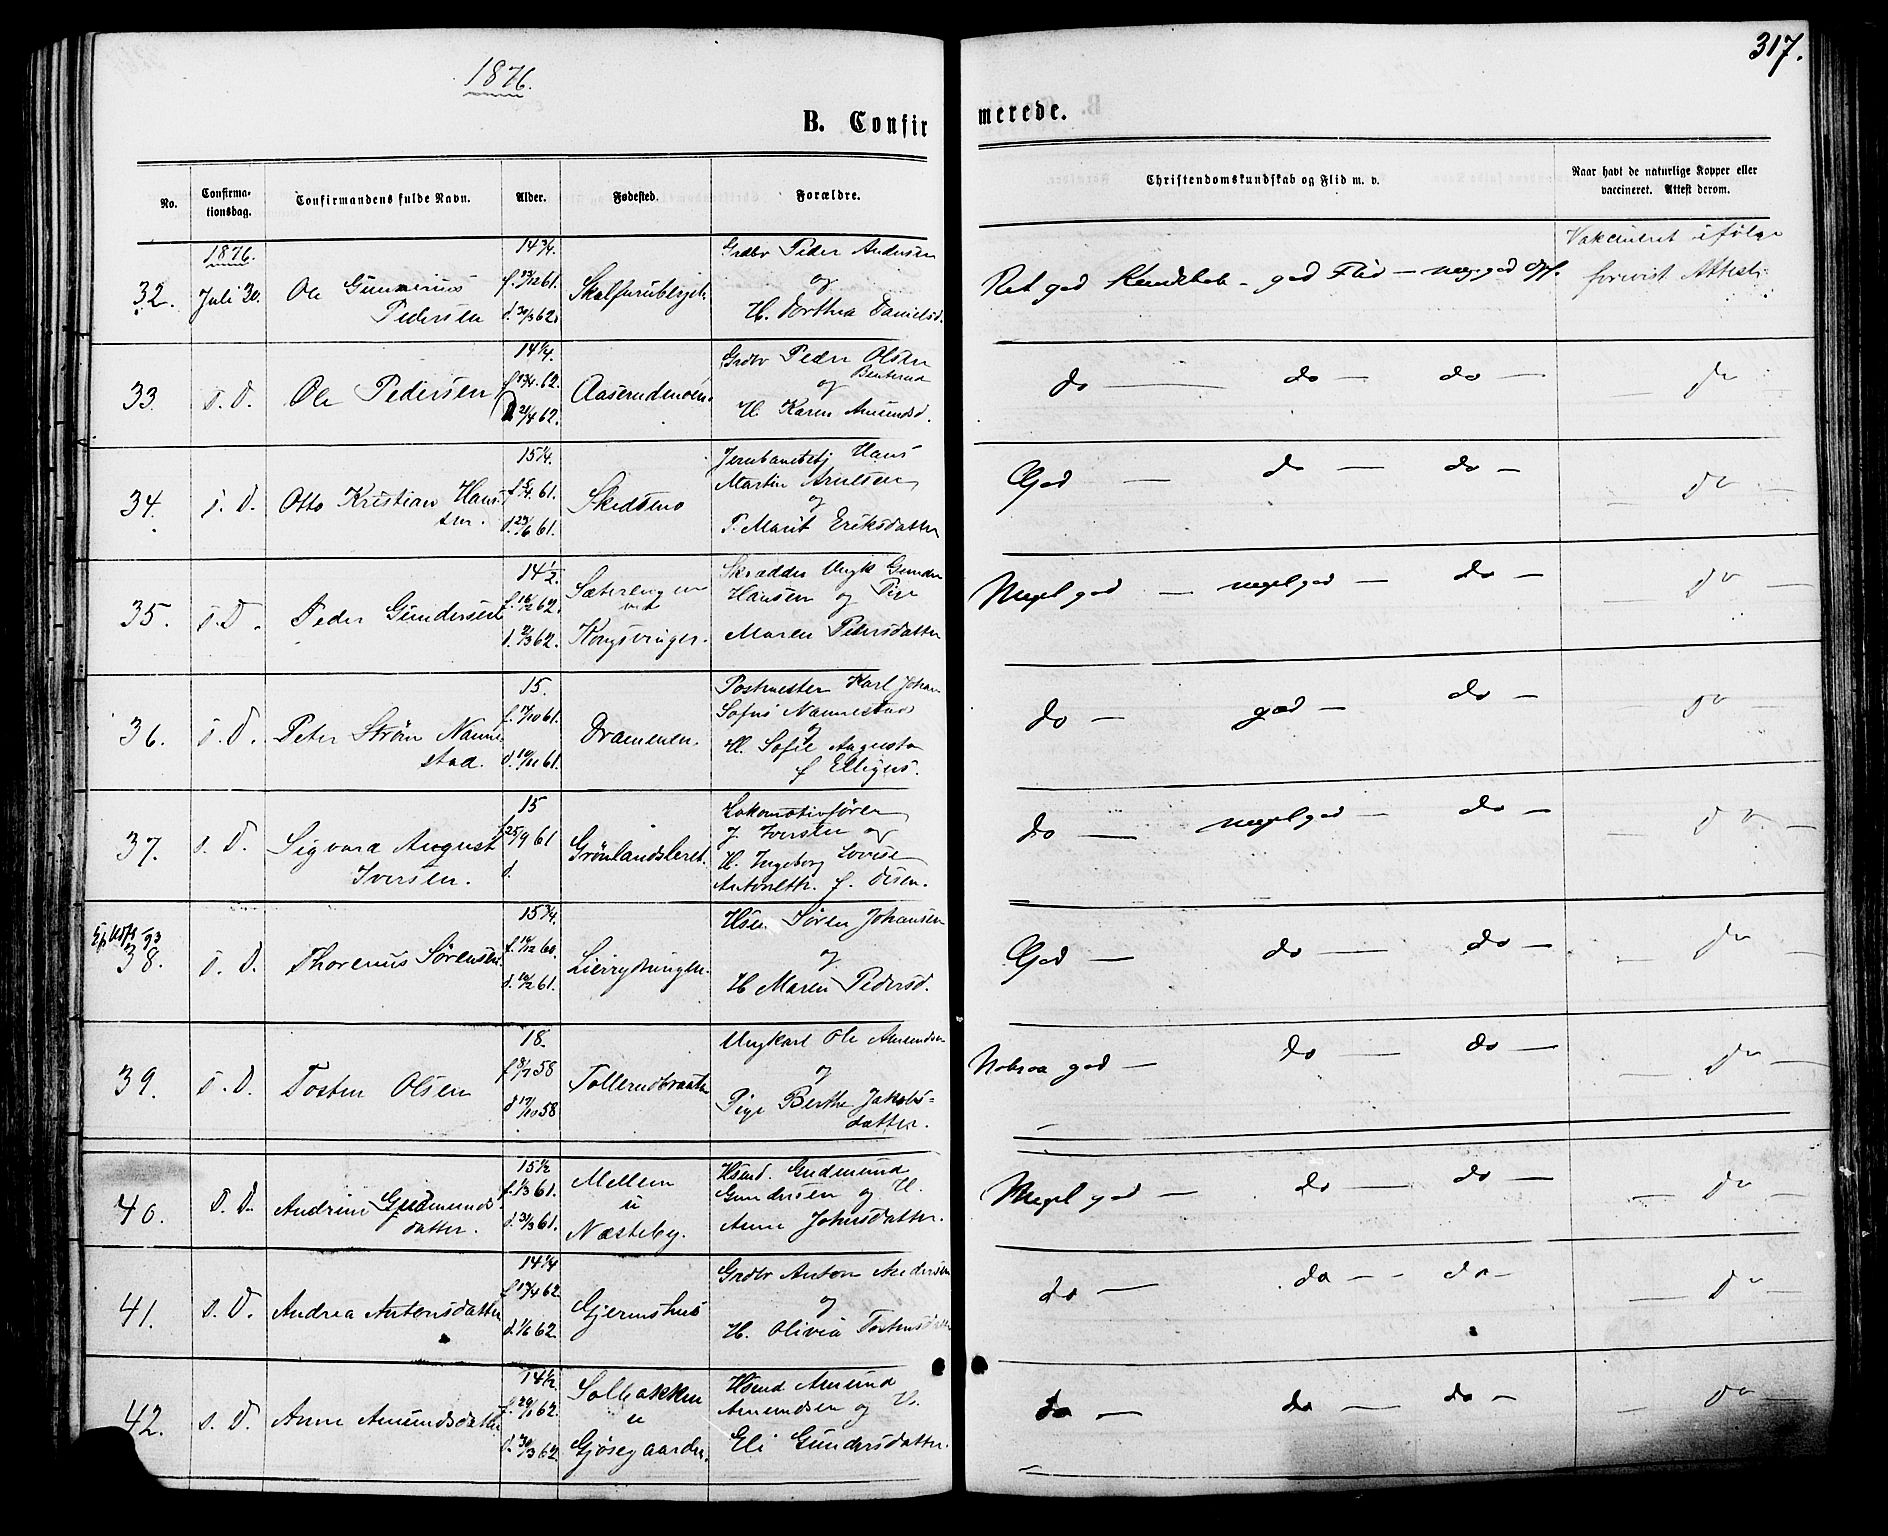 1876.
317.
B. Confirmerede.
No. Confirmationsdag. Confirmandens fulde Navn. Alder. Fødested. Forældre. Christendomskundskab og Flid m. v. Naar havt de naturlige Kopper eller vaccineret. Attest derom.
1876.
32. Juli 30. Ole Gunnerius Pedersen 14 3/4. Grdbr Peder Andersen og H. Dorthea Danielsd. Ret god Kundskab - god Flid - meget god Opf. Vakcineret ifølge forevist Attest
33. s. D. Ole Pedersen 14 1/4. f. 13/4 62. d. 21/4 62. Aaserudmoen Grdbr Peder Olsen og H. Karen Amundsd. do — do — do — do
34. s. D. Otto Kristian Hansen. 15 1/4. f. 5/4 61. d. 23/6 61. Skedsmo Hans Martin Arnesen og P. Marit Eriksdatter God — do — do — do
35. s. D. Peder Gundersen 14 1/2. f. 16/2 62. d. 2/3 62. Sæterengen ved Kongsvinger. Skrædder Ungk Gunder Hansen og Pige Maren Pedersdatter Meget god — meget god — do — do
36. s. D. Peter Strøm Nannestad. 15. f. 7/10 61. d. 10/11 61. Drammen. Postmester Karl Johan Sofus Nannestad og H. Sofie Augusta f. Elligers. do — god — do — do
37. s. D. Sigvard August Iversen. 15 f. 25/9 61 d. Grønlandsleret. Lokomotivfører J. Iversen og H. Ingeborg Lovise Antonette f. Olsen. do — meget god — do — do
38. s. D. Thorenus Sørensen. 15 3/4. f. 14/12 60. d. 10/2 61. Lierrydningen. Hsm. Søren Johansen og H. Maren Pedersd. God — do — do — do
39. s. D. Tosten Olsen 18. f. 8/7 58 d. 17/10 58 Tollerudbraaten Ungkarl Ole Amundsen og Pige Berthe Jakobsdatter. Nokså god — do — do — do
40. s. D. Andrine Gudmundsdatter. 15 1/2 f. 1/3 61. d. 31/3 61. Mellem u Næsteby. Hsmd. Gudmund Gundersen og H. Anne Johnsdatter. Meget god — do — do — do
41. s. D. Andrea Antonsdatter 14 1/4 f. 17/4 62 d. 1/6 62. Gjermshus Grdbr Anton Andersen og H. Olivia Tostensdatter do — do — do — do
42. s. D. Anne Amundsdatter 14 1/2. f. 29/1 62. d. 30/3 62. Solbakken u Gjøsegaarden. Hsmd Amund Amundsen og H. Eli Gundersdatter. do — do — do — do